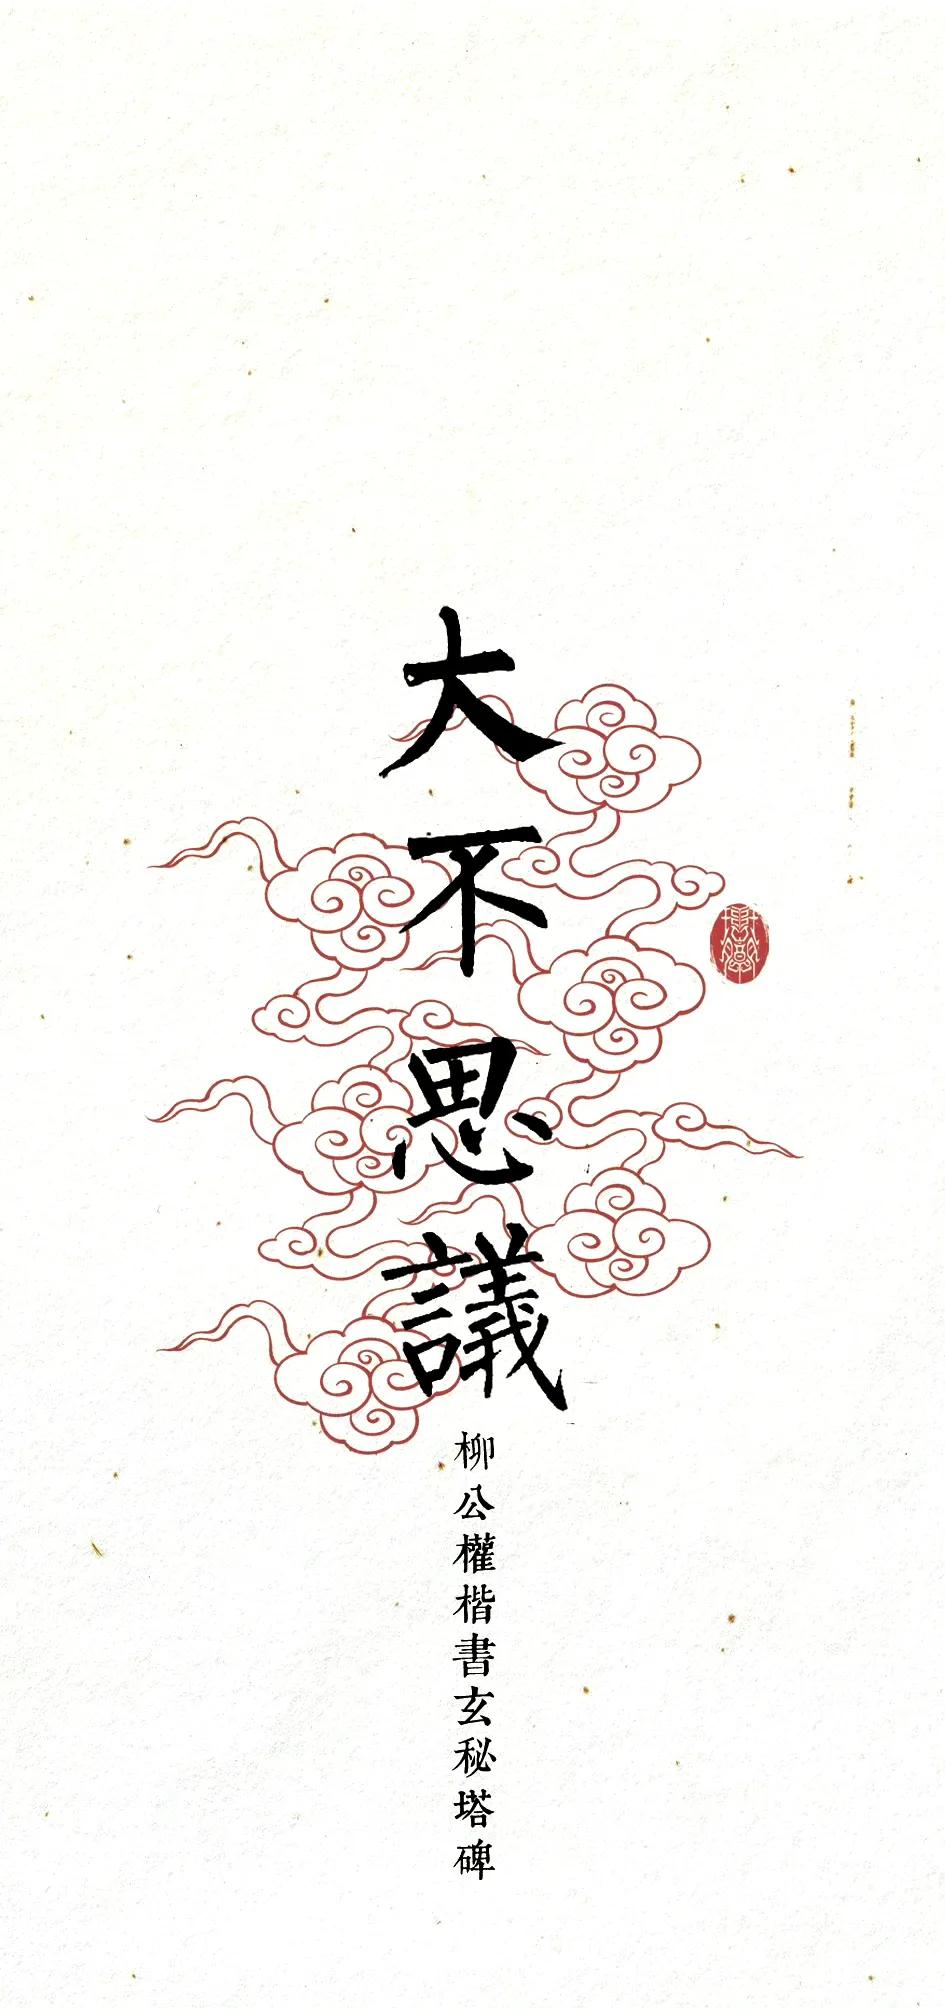 大不思議
柳公權楷書玄秘塔碑